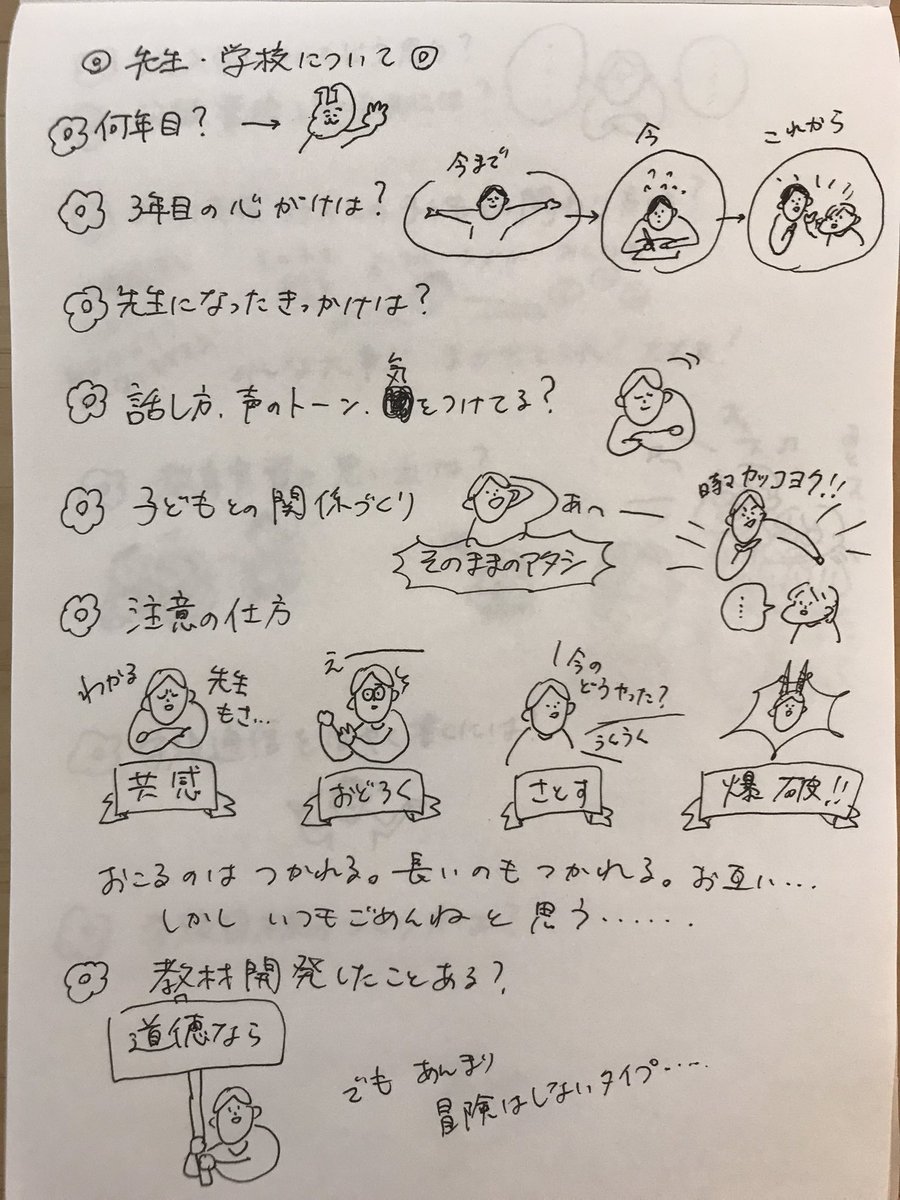 先生・学校について
何年目? →
3年目の心がけは?
今まで → 今 → これから
先生になったきっかけは?
話し方、声のトーン、気をつけてる?
子どもとの関係づくり
そのままのアタシ
あへ
時々カッコヨク!!
……
注意の仕方
わかる
先生
もさ…
共感
え
おどろく
今の
どうやった?
うんうん
さとす
爆破!!
おこるのは つかれる。長いのもつかれる。お互い…
しかし いつもごめんね と 思う……
教材開発したことある?
道徳なら
でも あんまり
冒険はしないタイプ……